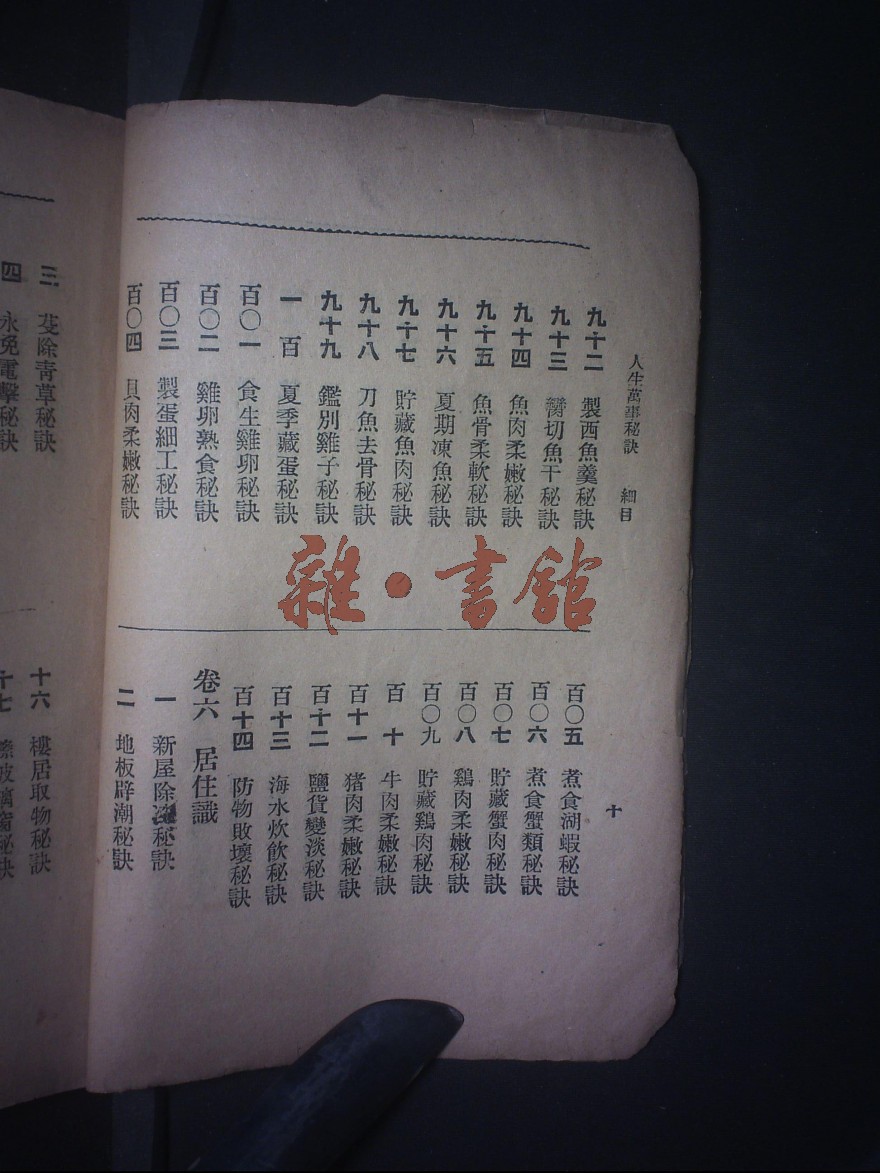 人生萬事秘訣　細目
九十二　製西魚羹秘訣
九十三　臠切魚干秘訣
九十四　魚肉柔嫩秘訣
九十五　魚骨柔軟秘訣
九十六　夏期凍魚秘訣
九十七　貯藏魚肉秘訣
九十八　刀魚去骨秘訣
九十九　鑑別雞子秘訣
一百　夏季藏蛋秘訣
百〇一　食生雞卵秘訣
百〇二　雞卵熟食秘訣
百〇三　製蛋細工秘訣
百〇四　貝肉柔嫩秘訣
百〇五　煮食湖蝦秘訣
百〇六　煮食蟹類秘訣
百〇七　貯藏蟹肉秘訣
百〇八　鷄肉柔嫩秘訣
百〇九　貯藏鷄肉秘訣
百十　牛肉柔嫩秘訣
百十一　猪肉柔嫩秘訣
百十二　鹽貨變淡秘訣
百十三　海水炊飲秘訣
百十四　防物敗壞秘訣
卷六　居住識
一　新屋除秘訣
二　地板辟潮秘訣
十
雜•書館
三　芟除青草秘訣
四　永免電擊秘訣
十六　樓居取物秘訣
十七　玻璃窗秘訣